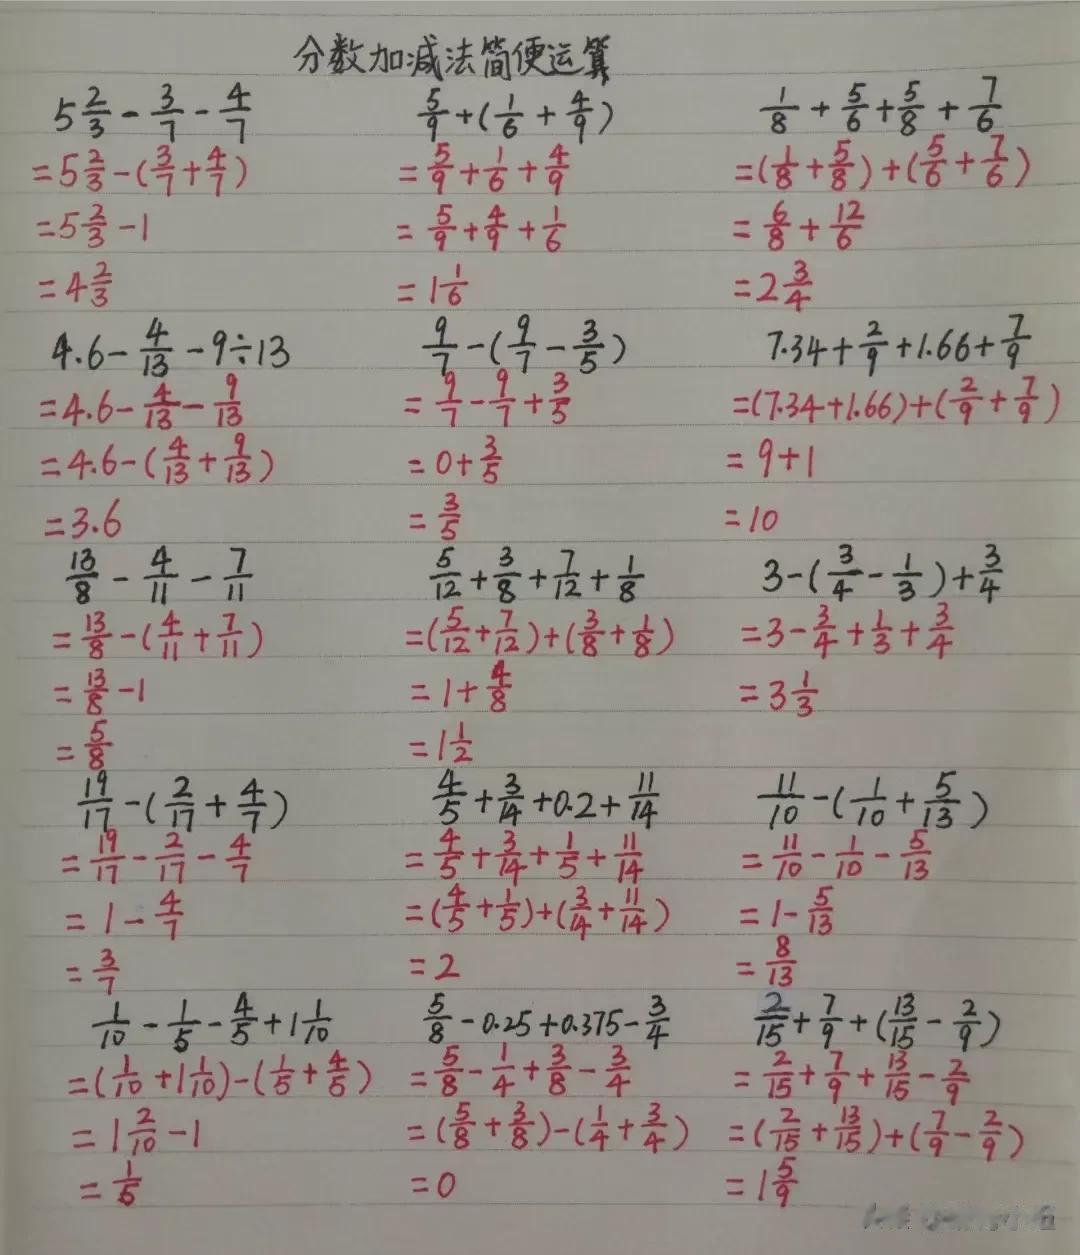 分数加减法简便运算
5 2/3 - 3/7 - 4/7
=5 2/3-(3/7+4/7)
=5 2/3-1
=4 2/3
5/9+(1/6+4/9)
=5/9+1/6+4/9
=5/9+4/9+1/6
=1 1/6
1/8+5/6+5/8+7/6
=(1/8+5/8)+(5/6+7/6)
=6/8+12/6
=2 3/4
4.6-4/13-9÷13
=4.6-4/13-9/13
=4.6-(4/13+9/13)
=3.6
9/7-(9/7-3/5)
=9/7-9/7+3/5
=0+3/5
=3/5
7.34+2/9+1.66+7/9
=(7.34+1.66)+(2/9+7/9)
=9+1
=10
13/8-4/11-7/11
=13/8-(4/11+7/11)
=13/8-1
=5/8
5/12+3/8+7/12+1/8
=(5/12+7/12)+(3/8+1/8)
=1+4/8
=1 1/2
3-(3/4-1/3)+3/4
=3-3/4+1/3+3/4
=3 1/3
19/17-(2/17+4/7)
=19/17-2/17-4/7
=1-4/7
=3/7
4/5+3/14+0.2+11/14
=4/5+3/14+1/5+11/14
=(4/5+1/5)+(3/14+11/14)
=2
11/10-(1/10+5/13)
=11/10-1/10-5/13
=1-5/13
=8/13
1/10-1/5-4/5+1 1/10
=(1/10+1 1/10)-(1/5+4/5)
=1 2/10-1
=1/5
5/8-0.25+0.375-3/4
=5/8-1/4+3/8-3/4
=(5/8+3/8)-(1/4+3/4)
=0
2/15+7/9+(13/15-2/9)
=2/15+7/9+13/15-2/9
=(2/15+13/15)+(7/9-2/9)
=1 5/9